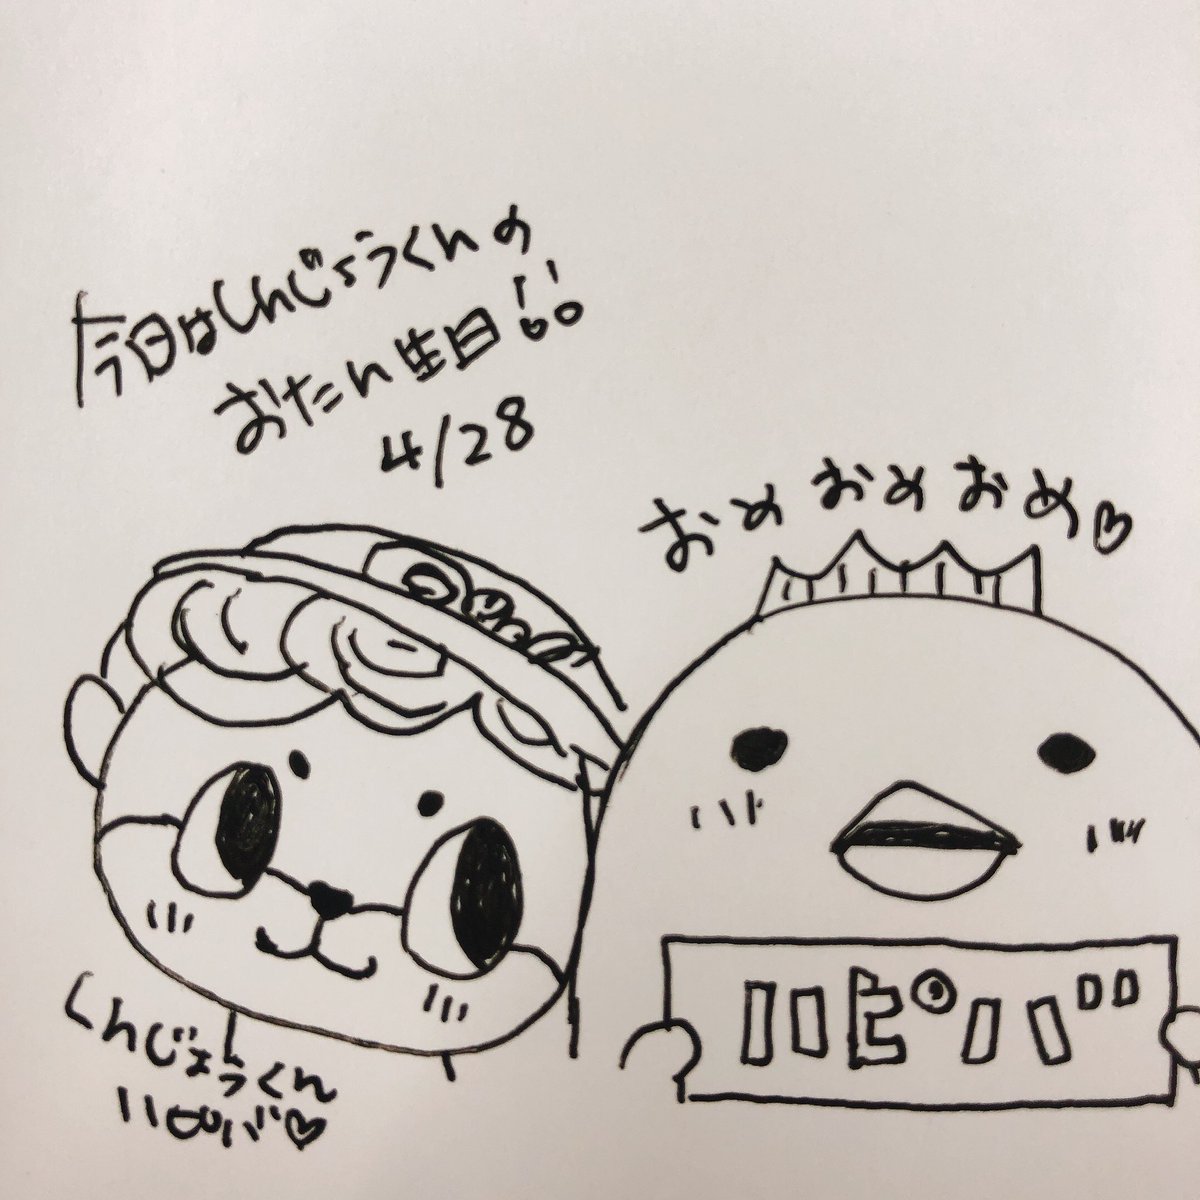 今日はしんじょうくんの
おたん生日!!
4/28
おめおめおめ♡
ハピバ
しんじょうくん
ハピバ♡